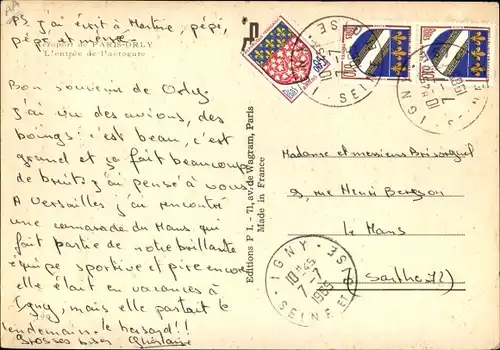 PS j'ai écrit à Martine, pépé,
pépé et mémé.
Aéroport de PARIS-ORLY
L'entrée de l'aérogare
Bon souvenir de Orly.
j'ai vu des avions, des
boings : c'est beau, c'est
grand et ça fait beaucoup
de bruit. j'ai pensé à vous
A Versailles j'ai rencontré
une camarade du Mans qui
fait partie de notre brillante
équipe sportive et pire encore
elle était en vacances à
Igny, mais elle partait le
lendemain. le hasard !!
Grosses bises Ghislaine
Editions P I. - 71, av. de Wagram, Paris
Made in France
Madame et messieurs
9, rue Henri Bergson
Le Mans
Sarthe (72)
IGNY - SEINE ET
10H45
7-7
1965